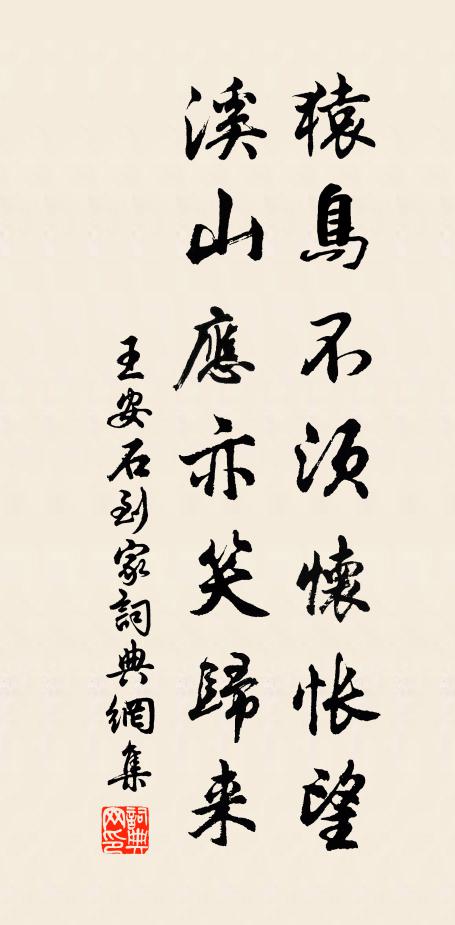 猿鳥不須懷悵望
溪山應亦笑歸来
王安石到家詞典網集
詞典
网印